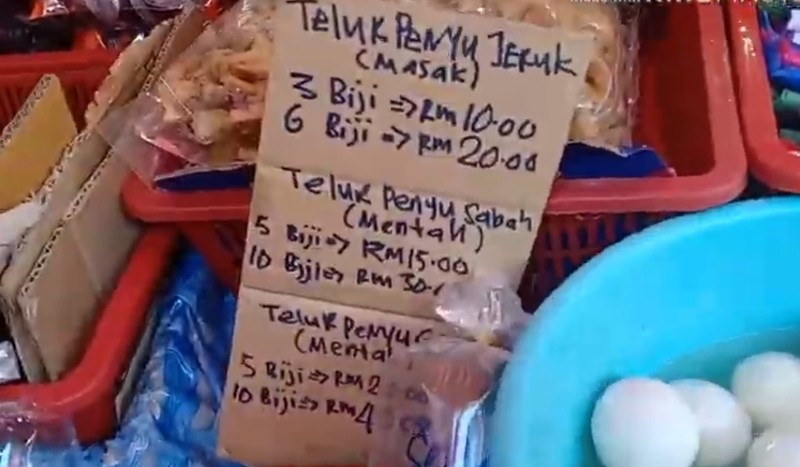 TELUK PENYU JERUK
(MASAK)
3 Biji => Rm 10.00
6 Biji => Rm 20.00
TELUK Penyu Sabah
(Mentah)
5 Biji => RM15.00
10 Biji => Rm 30.
TELUK PENYU
(Menta
5 Biji => Rm 2
10 Biji => Rm 4